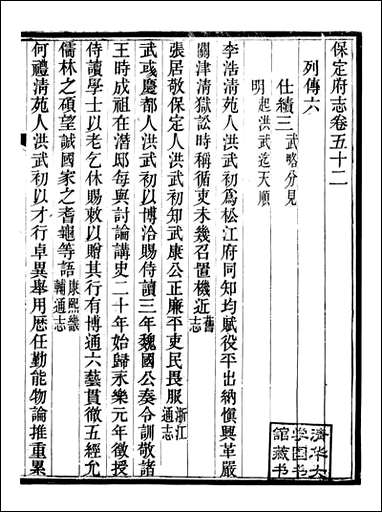 保定府志卷五十二
列傳六
仕績三 武略分見
明 起洪武迄天順
李浩淸苑人洪武初爲松江府同知均賦役平出納愼興革嚴
關津淸獄訟時稱循吏未幾召置機近 舊志
張居敬保定人洪武初知武康公正廉平吏民畏服 浙江通志
武彧慶都人洪武初以博洽賜侍讀三年魏國公奏令訓敬諸
王時成祖在潛邸每與討論講史二十年始歸永樂元年徵授
侍讀學士以老乞休賜敕以贈其行有博通六藝貫徹五經允
儒林之碩望誠國家之耆龜等語 康熙畿輔通志
何禮淸苑人洪武初以才行卓異舉用歷任勤能物論推重累
淸华大
学图书
館藏书